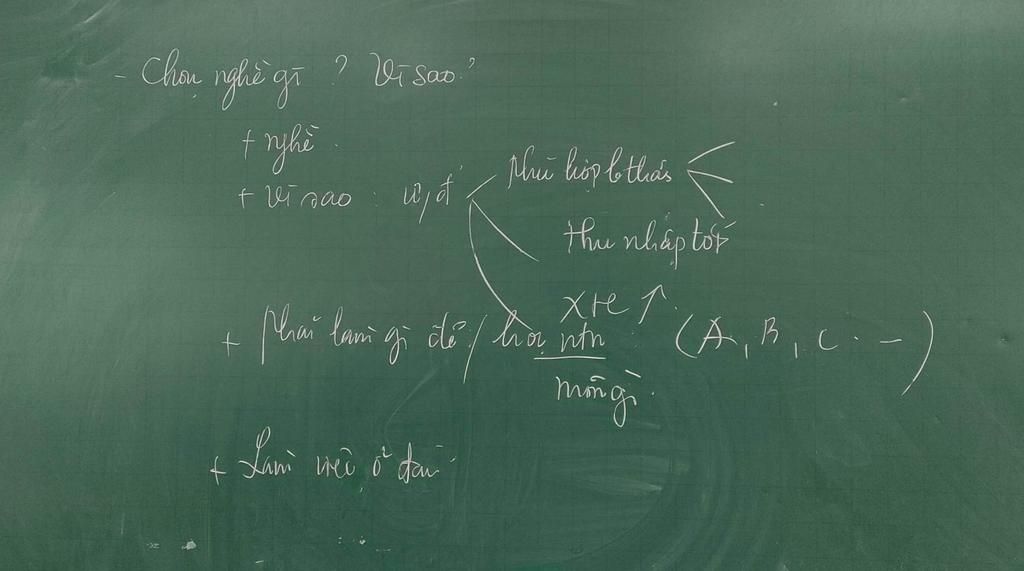 - Chọn nghề gì ? Vì sao ?
+ nghề
+ Vì sao : ư/đ
phù hợp b thân
thu nhập tốt
+ Phải làm gì để / học ntn (A, B, C . -)
môn gì
+ Làm việc ở đâu